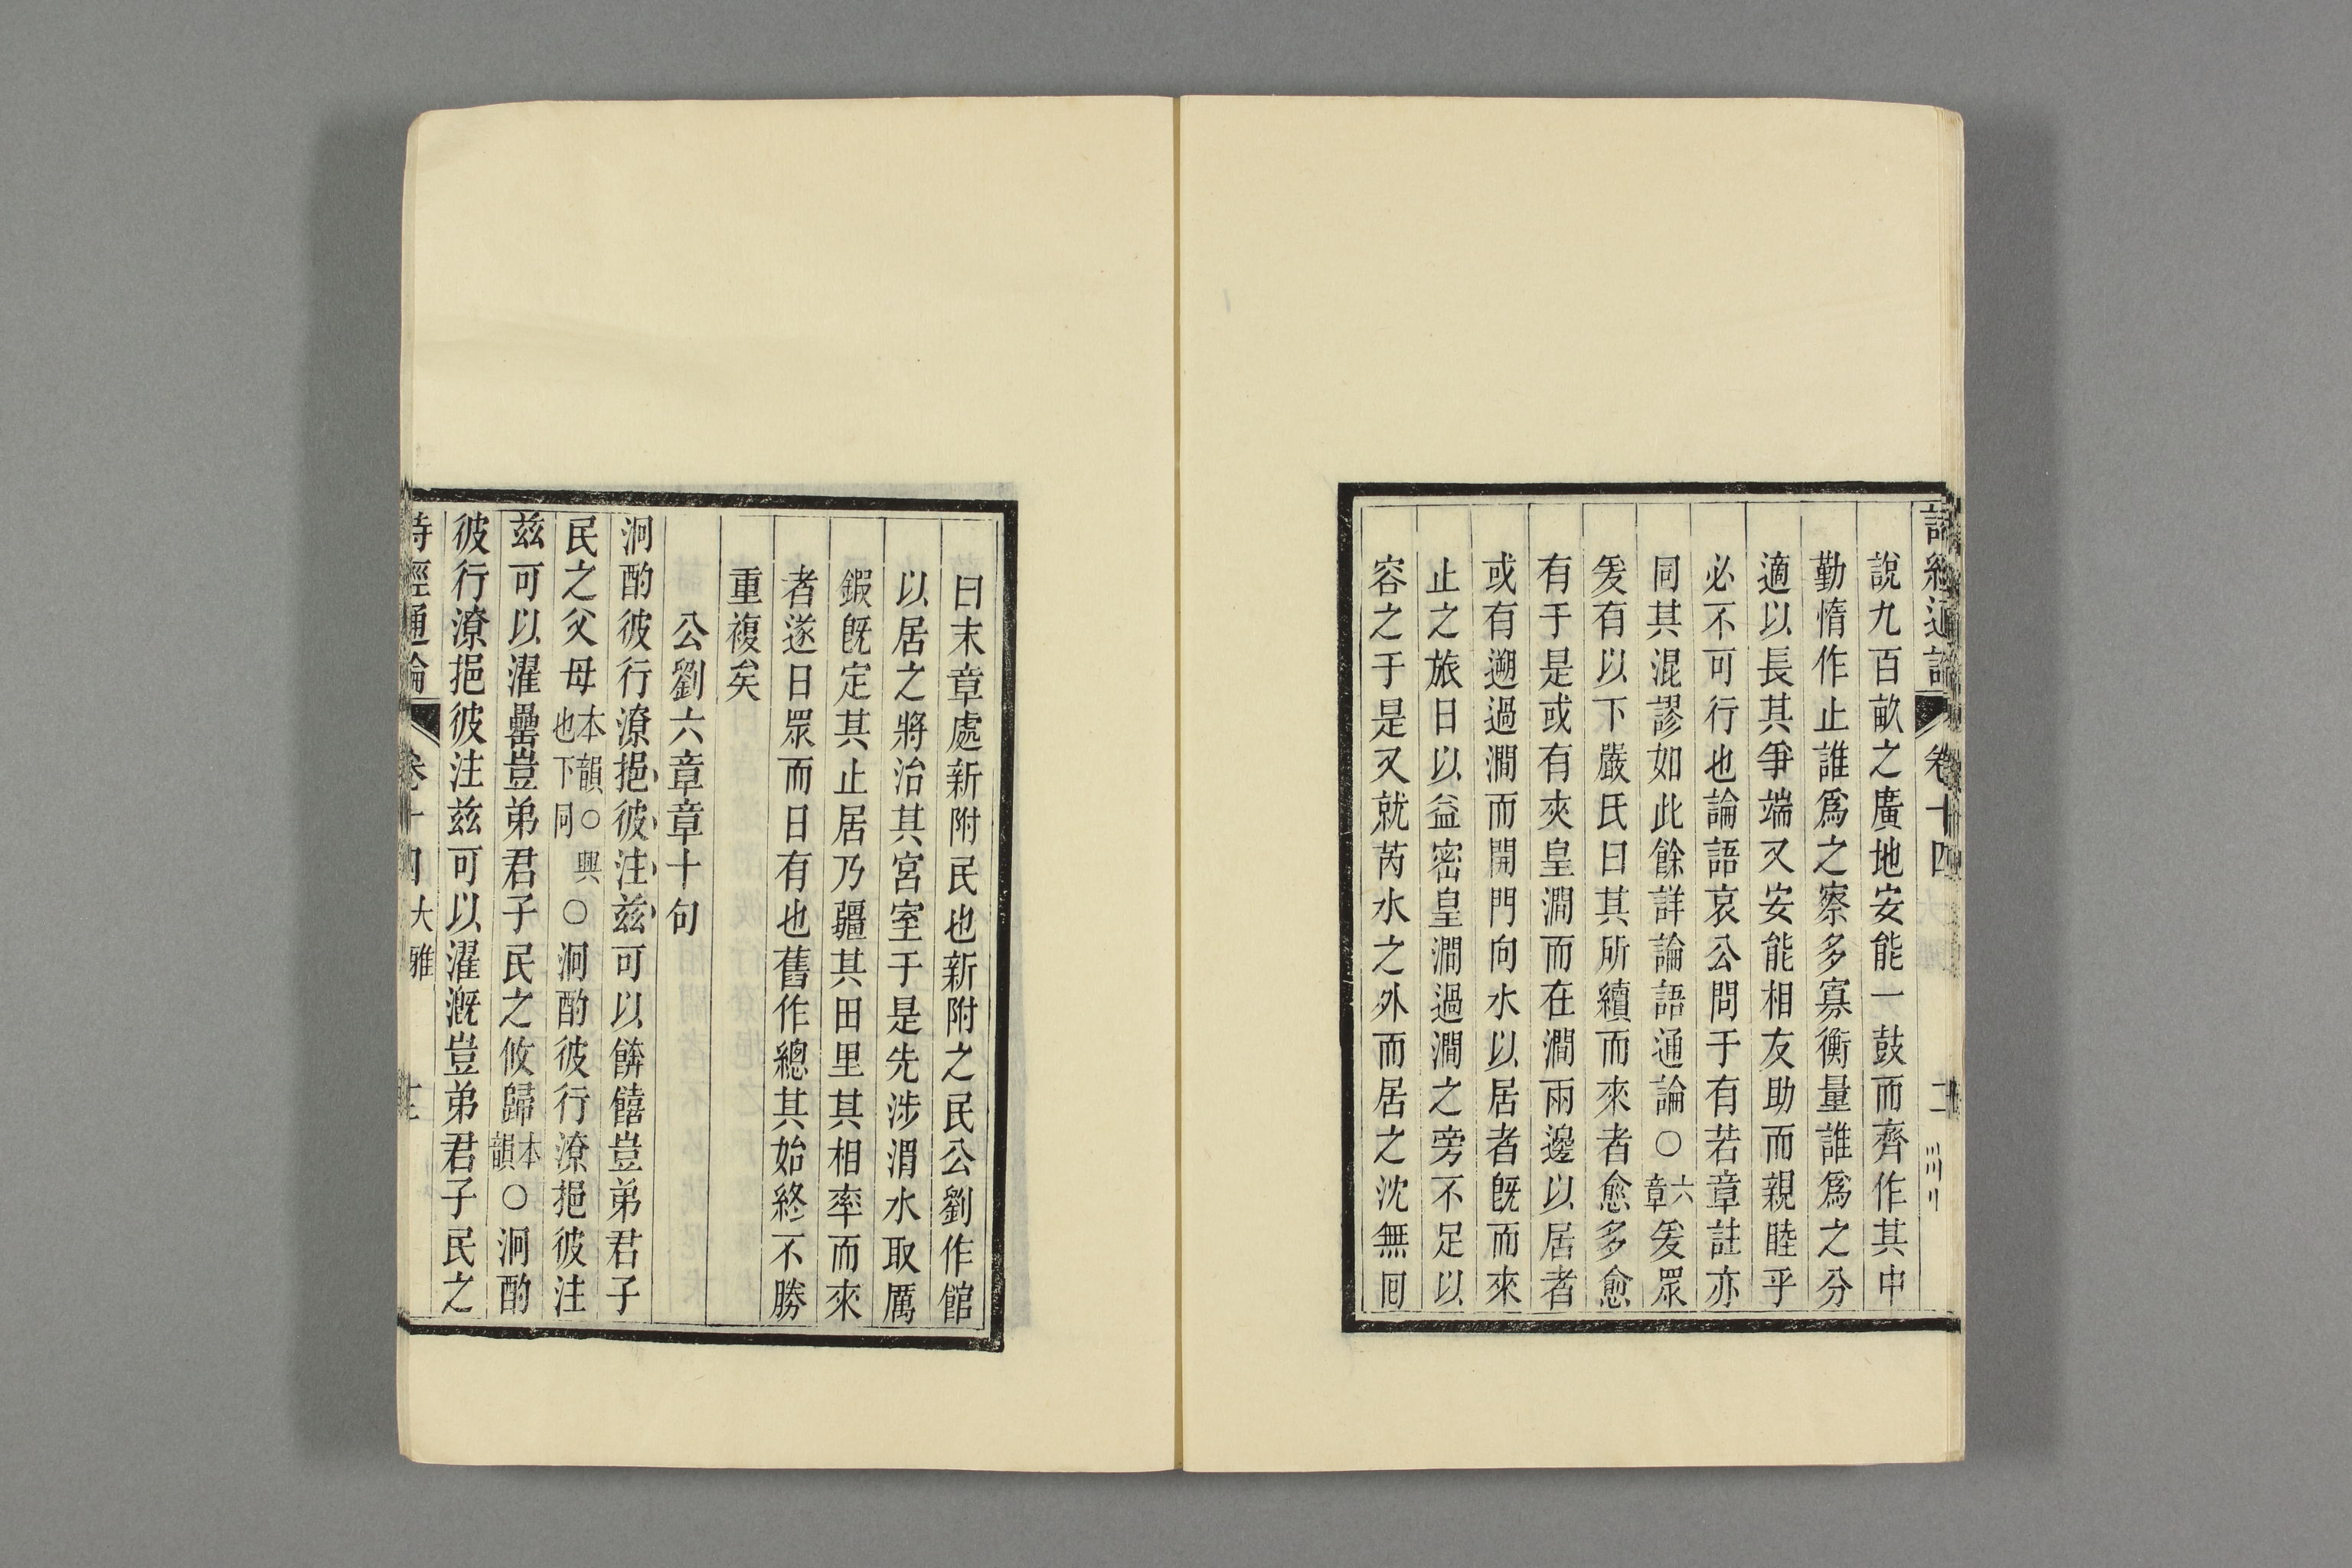 詩經通論 卷十四
說九百畝之廣地安能一鼓而齊作其中
勤惰作止誰爲之察多寡衡量誰爲之分
適以長其爭端又安能相友助而親睦乎
必不可行也論語哀公問于有若章註亦
同其混謬如此餘詳論語通論○六章爰眾
爰有以下嚴氏曰其所續而來者愈多愈
有于是或有夾皇澗而在澗兩邊以居者
或有遡過澗而開門向水以居者旣而來
止之旅日以益密皇澗過澗之旁不足以
容之于是又就芮水之外而居之沈無回
曰末章處新附民也新附之民公劉作館
以居之將治其宮室于是先涉渭水取厲
鍜旣定其止居乃疆其田里其相率而來
者遂日眾而日有也舊作總其始終不勝
重複矣
公劉六章章十句
泂酌彼行潦挹彼注茲可以餴饎豈弟君子
民之父母本韻○興也下同○泂酌彼行潦挹彼注
茲可以濯罍豈弟君子民之攸歸本韻○泂酌
彼行潦挹彼注茲可以濯漑豈弟君子民之
詩經通論 卷十四 大雅